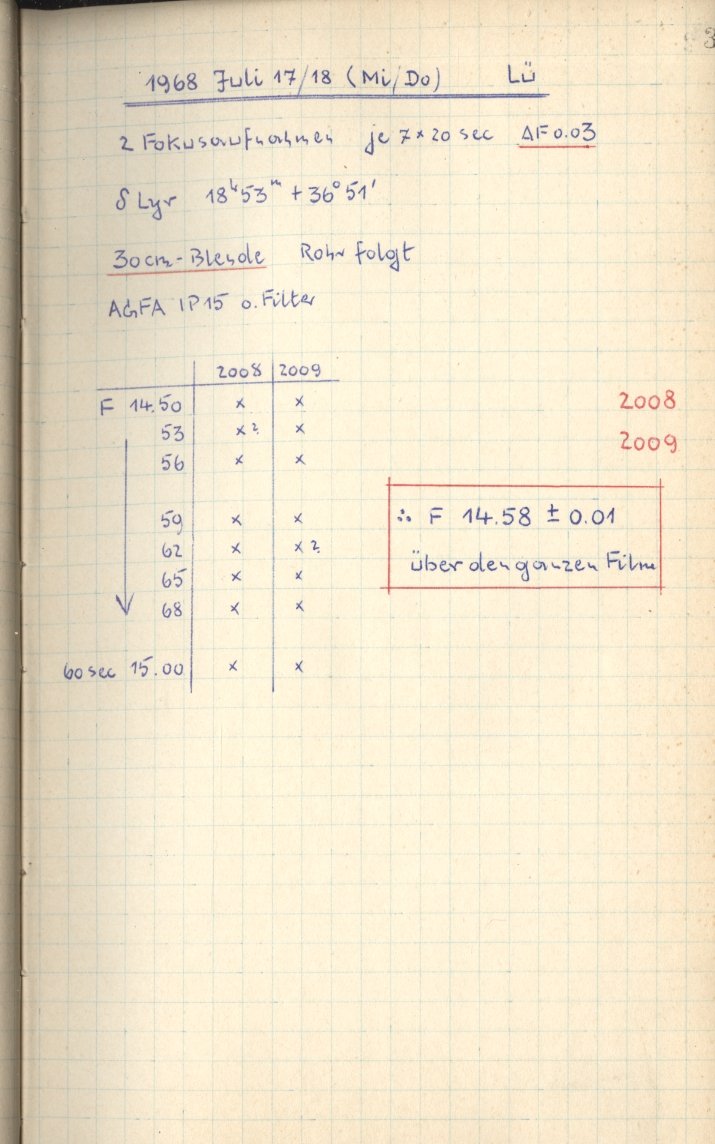 3
1968 Juli 17/18 (Mi/Do) Lü
2 Fokusaufnahmen je 7 x 20 sec ΔF 0.03
δ Lyr 18ʰ53ᵐ + 36° 51'
30cm-Blende Rohr folgt
AGFA IP15 o. Filter
2008 2009
F 14.50 x x
53 x? x
56 x x
59 x x
62 x x?
65 x x
68 x x
60 sec 15.00 x x
2008
2009
∴ F 14.58 ± 0.01
über den ganzen Film